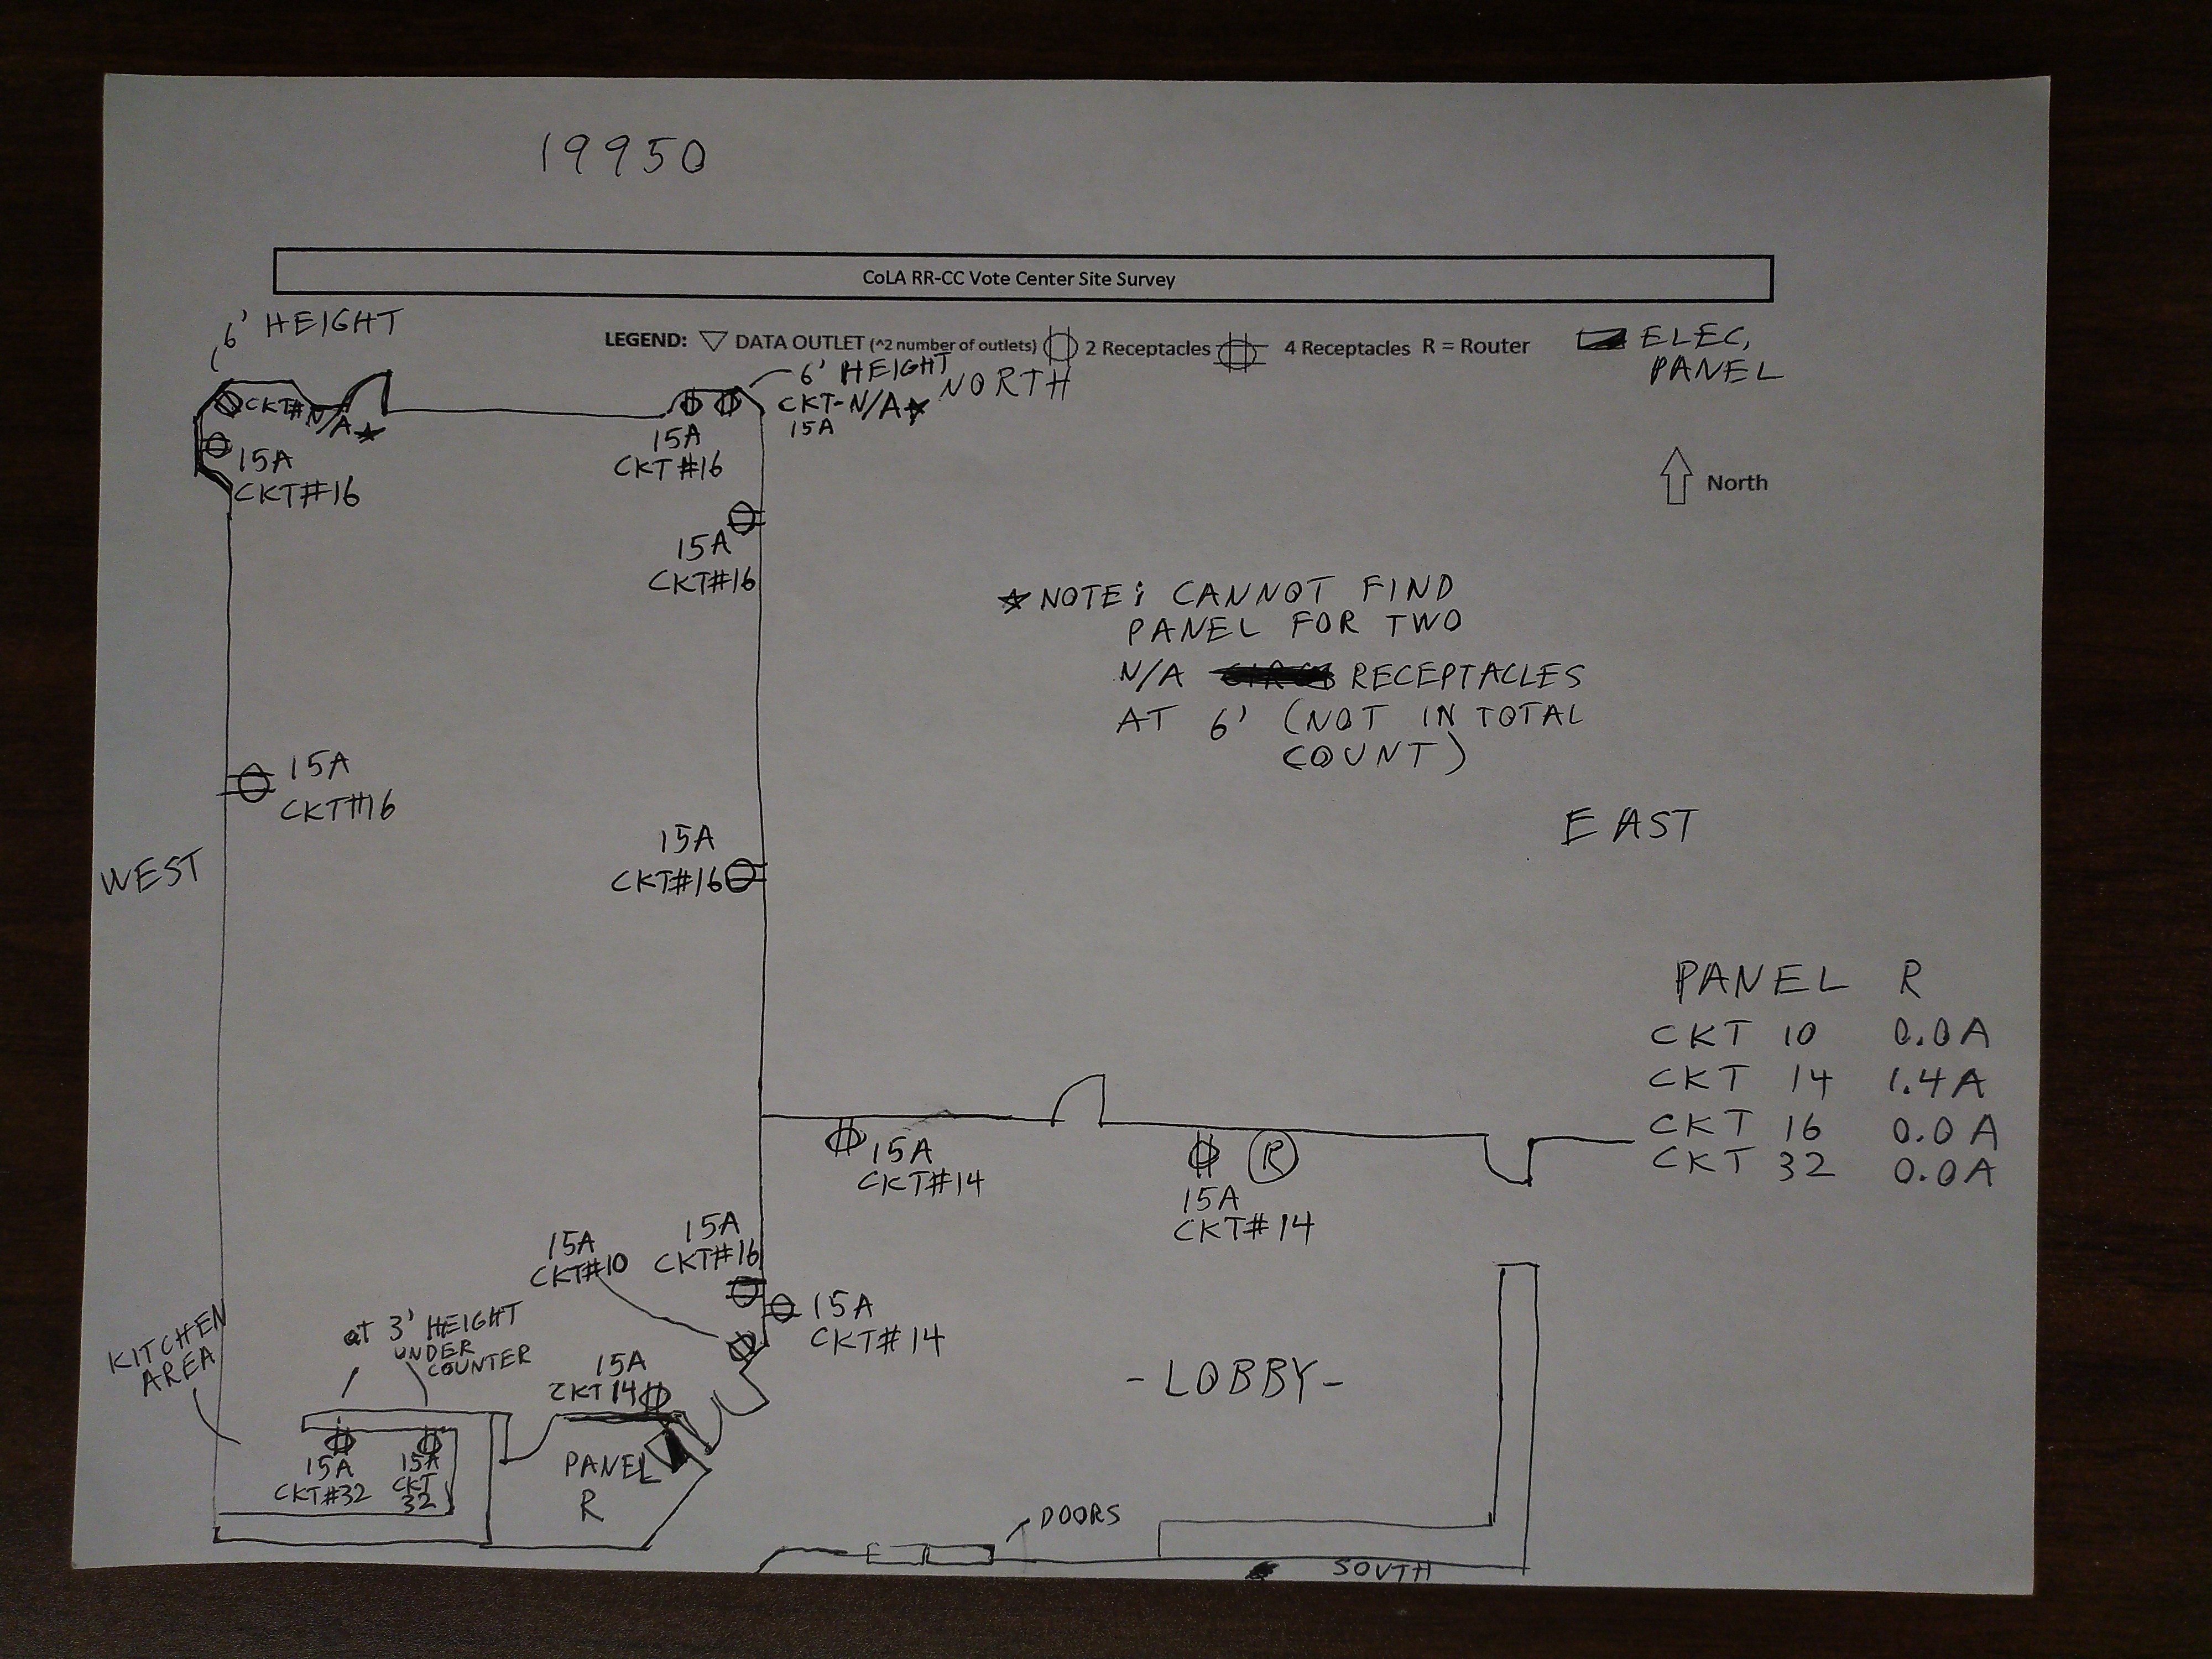 19950
CoLA RR-CC Vote Center Site Survey
6' HEIGHT
LEGEND: ▽ DATA OUTLET (^2 number of outlets) 2 Receptacles 4 Receptacles R = Router
ELEC.
PANEL
6' HEIGHT
CKT-N/A★
15A
NORTH
CKT# N/A★
15A
CKT#16
15A
CKT#16
North
15A
CKT#16
★NOTE: CANNOT FIND
PANEL FOR TWO
N/A RECEPTACLES
AT 6' (NOT IN TOTAL
COUNT)
15A
CKT#16
EAST
WEST
15A
CKT#16
PANEL R
CKT 10 0.0A
CKT 14 1.4A
CKT 16 0.0A
CKT 32 0.0A
15A
CKT#14
R
15A
CKT#14
15A
CKT#10
15A
CKT#16
15A
CKT#14
KITCHEN
AREA
at 3' HEIGHT
UNDER
COUNTER
15A
CKT 14
-LOBBY-
15A
CKT#32
15A
CKT
32
PANEL
R
DOORS
SOUTH